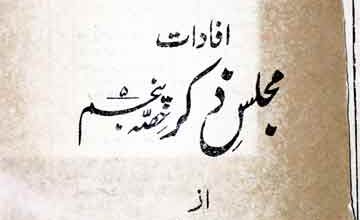 افادات
مجلسِ ذکر حصّہ پنجم ۵
از